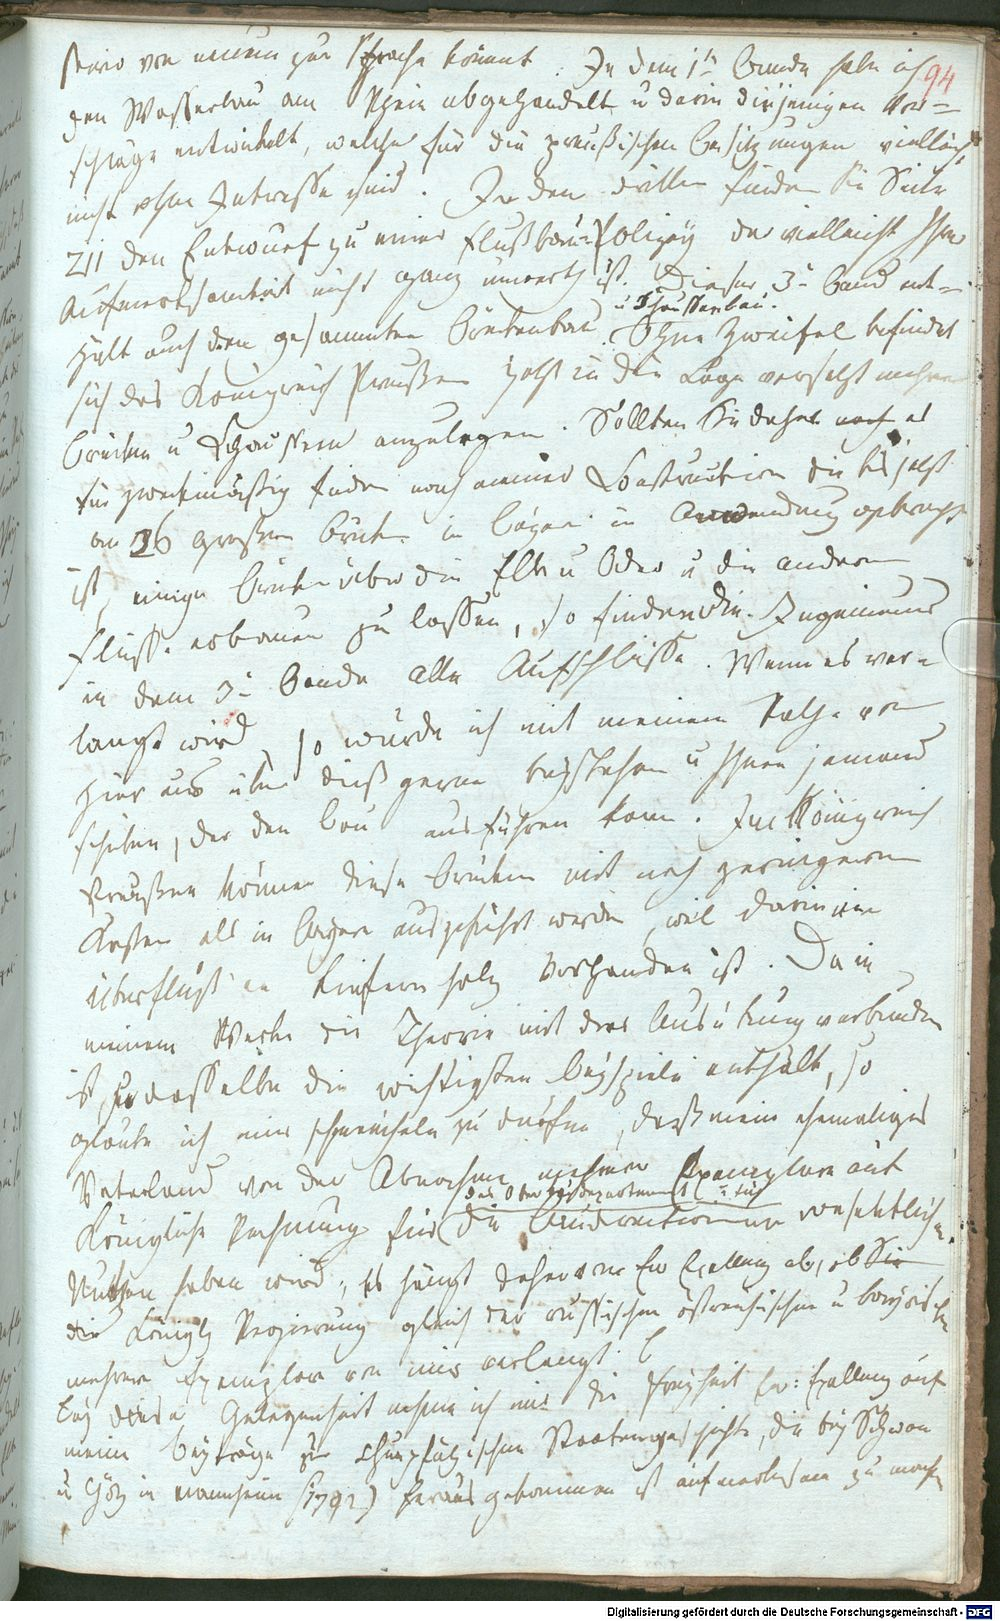 94
von neuem zur Sprache kömmt. In dem 1t Bande habe ich
den Wasserbau am Rhein abgehandelt u darin diejenigen Vor=
schläge entwickelt, welche für die preußischen Besitzungen vielleicht
nicht ohne Interesse sind. In den dritten finden Sie Seite
211 den Entwurf zu einer Flußbau=Polizey der vielleicht Ihrer
Aufmerksamkeit nicht ganz unwerth ist. Dieser 3t Band ent=
u Chausseebau.
hält auch den gesammten Brückenbau Ohne Zweifel befindet
sich das Königreich Preußen jetzt in die Lage versetzt mehrere
Brücken u Chausseen anzulegen. Sollten Sie daher es
für zweckmäßig finden nach meiner Construction die bis jetzt
an 26 großen Brücken in Bayern in Anwendung gebracht
ist, einige Brücken über die Elb u Oder u die anderen
Flüsse erbauen zu lassen, so finden die Ingenieurs
in dem 3t Bande alle Aufschlüsse. Wenn es ver=
langt wird, so würde ich mit meinem Rathe von
hier aus über dieß gerne beystehen u Ihnen jemand
schicken, der den Bau ausführen kann. Im Königreich
Preußen können diese Brücken mit noch geringeren
Kosten als in Bayern ausgeführt werden, weil darin ein
Überfluß an Kiefernholz vorhanden ist. Da in
meinem Werke die Theorie mit der Ausübung verbunden
ist, u dasselbe die wichtigsten Beyspiele enthält, so
glaube ich mir schmeicheln zu dürfen, daß mein ehemaliges
Vaterland von der Abnahme mehrerer Exemplare auf
das Oberbaudepartement u für
Königliche Rechnung für die Baudirectionen wesentlichen
Nutzen haben wird; es hängt daher von Ew Exellenz ab, ob Sie
die Königl Regierung gleich der russischen östreichischen u bayrischen
mehrere Exemplar von mir verlangt.
Bey dieser Gelegenheit nehme ich mir die Freyheit Ew: Exellenz auf
meine Beyträge zur churpfälzischen Staatengeschichte, die bey Schwan
u Götz in Mannheim (1792) heraus gekommen ist aufmerksam zu machen
Digitalisierung gefördert durch die Deutsche Forschungsgemeinschaft - DFG